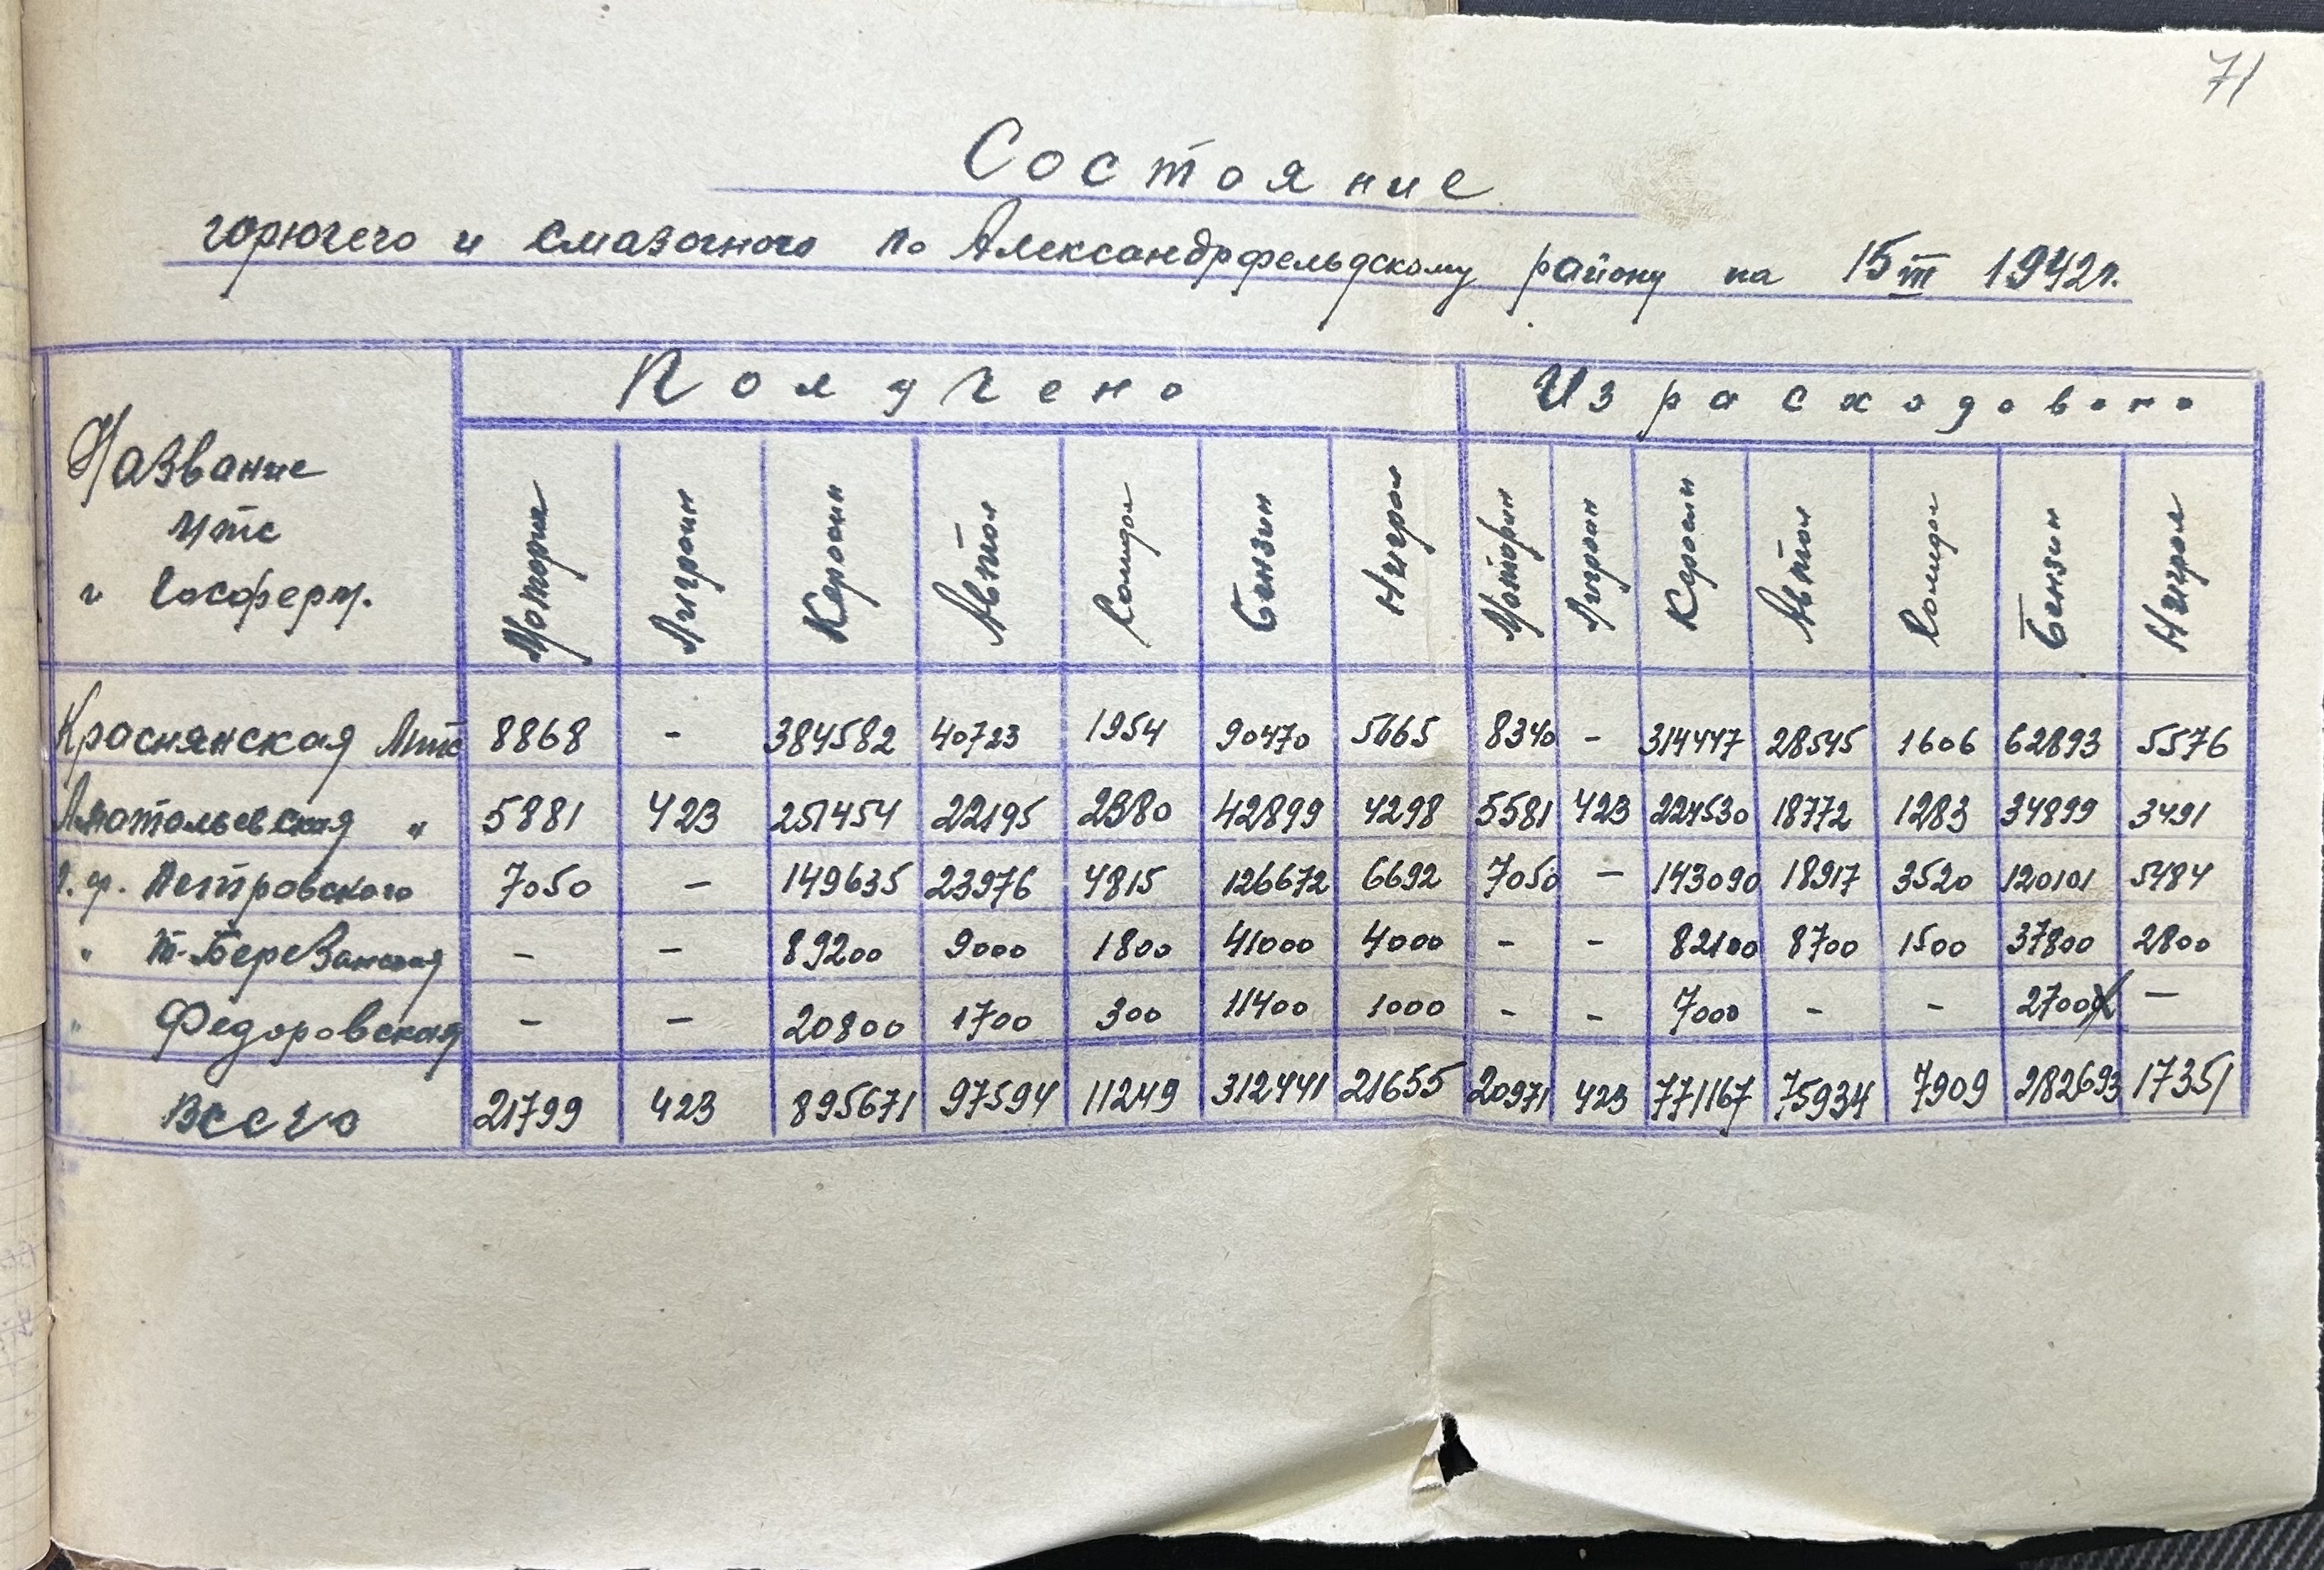 71
Состояние
горючего и смазочного по Александрфельдскому району на 15 III 1942 г.
Название мтс и Госферм. Получено Израсходовано
Моторин Лигроин Керосин Автол Солидол Бензин Нигрол Моторин Лигроин Керосин Автол Солидол Бензин Нигрол
Краснянская Мтс 8868 - 384582 40723 1954 90470 5665 8340 - 314447 28545 1606 62893 5576
Анатольевская " 5881 423 251454 22195 2380 42899 4298 5581 423 224530 18772 1283 34899 3491
Г.ф. Петровского 7050 - 149635 23976 4815 126672 6692 7050 - 143090 18917 3520 120101 5484
" Т-Березанская - - 89200 9000 1800 41000 4000 - - 82100 8700 1500 37800 2800
" Федоровская - - 20800 1700 300 11400 1000 - - 7000 - - 27000 -
Всего 21799 423 895671 97594 11249 312441 21655 20971 423 771167 75934 7909 282693 17351